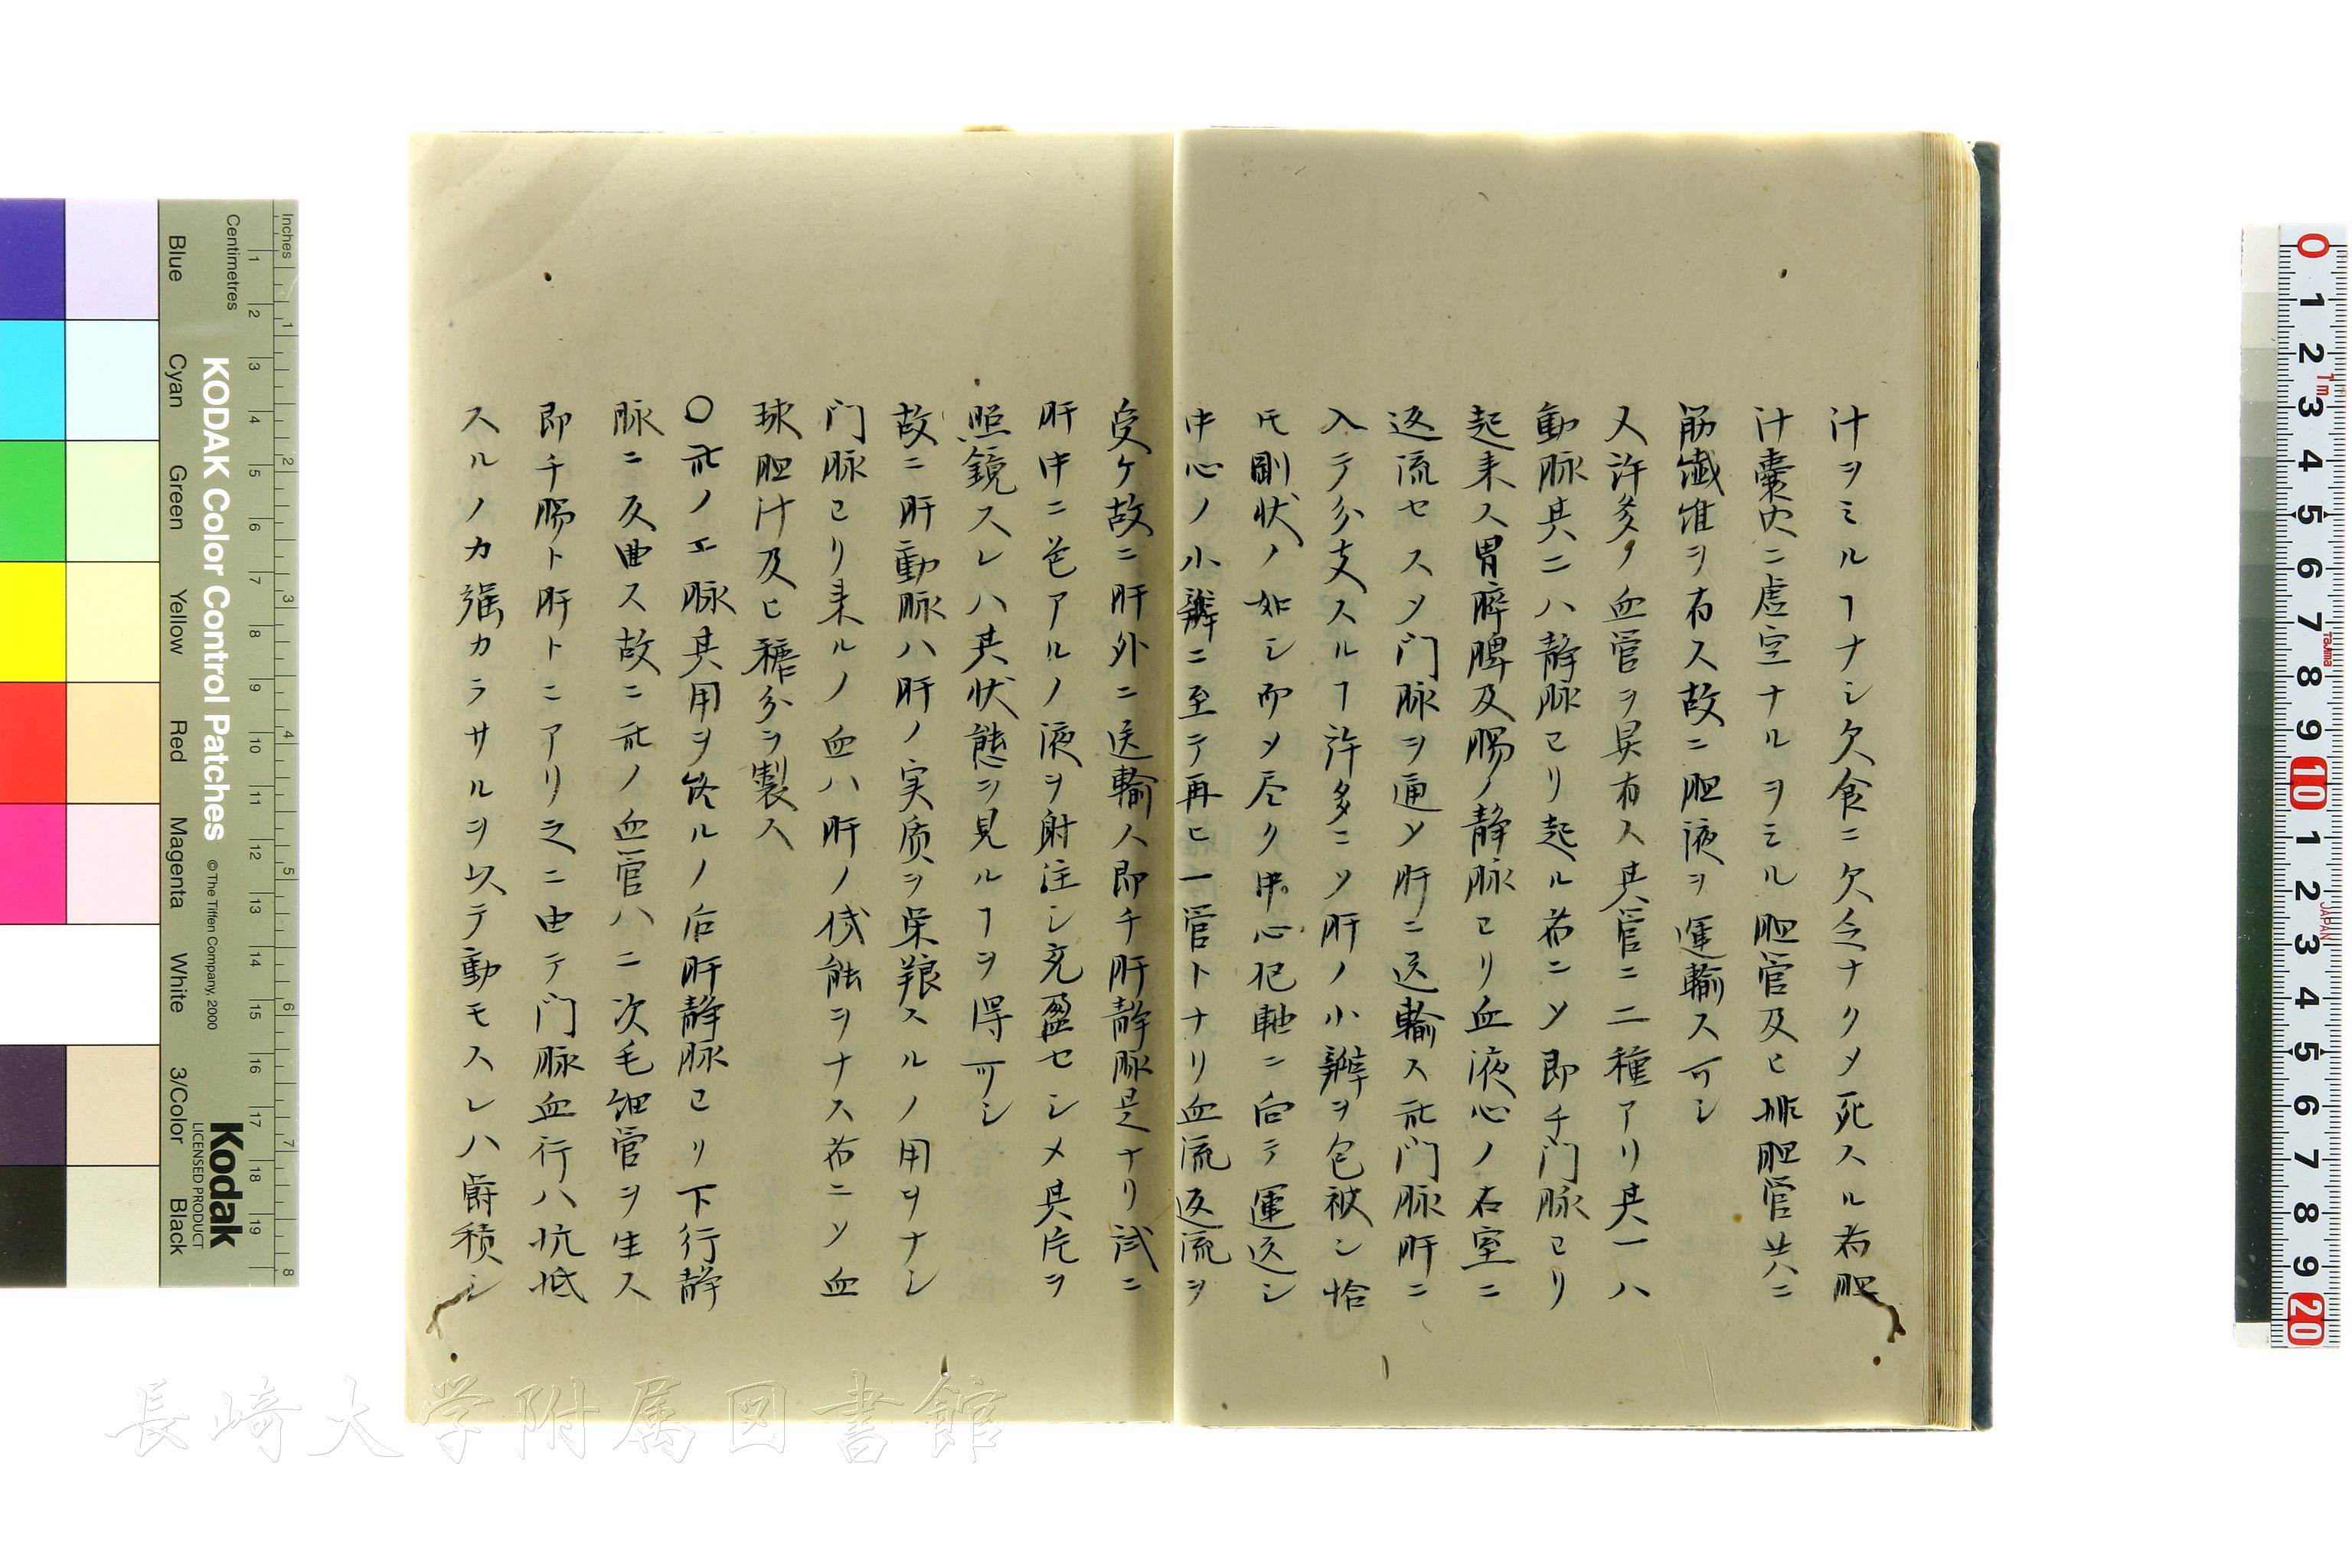 汁ヲミルヿナシ欠食ニ欠乏ナクメ死スル者胆
汁嚢内ニ虚空ナルヲミル胆管及ヒ排胆管共ニ
筋繊維ヲ有ス故ニ胆液ヲ運輸ス可シ
又許多ノ血管ヲ具有ス其管ニ二種アリ其一ハ
動脉其二ハ静脉ヨリ起ル者ニソ即チ門脉ヨリ
起来ス胃膵脾及腸ノ静脉ヨリ血液心ノ右室ニ
返流セスソ門脉ヲ通ソ肝ニ送輸ス此門脉肝ニ
入テ分支スルヿ許多ニソ肝ノ小辨ヲ包被シ恰
モ剛状ノ如シ而メ尽ク中心杞軸ニ向テ運送シ
中心ノ小辨ニ至テ再ヒ一管トナリ血流返流ヲ
受ケ故ニ肝外ニ送輸ス即チ肝静脉是ナリ試ニ
肝中ニ色アルノ液ヲ射注シ充盈セシメ其片ヲ
照鏡スレハ其状態ヲ見ルヿヲ得可シ
故ニ肝動脉ハ肝ノ実质ヲ栄養スルノ用ヲナシ
门脉ヨリ来ルノ血ハ肝ノ機能ヲナス者ニソ血
球胆汁及ヒ糖分ヲ製ス
〇此ノ工脉其用ヲ終ルノ后肝静脉ヨリ下行静
脉ニ反曲ス故ニ此ノ血管ハ二次毛细管ヲ生ス
即チ腸ト肝トニアリ之ニ由テ门脉血行ハ抗抵
スルノカ强カラサルヲ以テ動モスレハ欝積シ
KODAK Color Control Patches
© The Tiffen Company, 2000
Kodak
LICENSED PRODUCT
Inches
Centimetres
Blue Cyan Green Yellow Red Magenta White 3/Color Black
長崎大学附属図書館